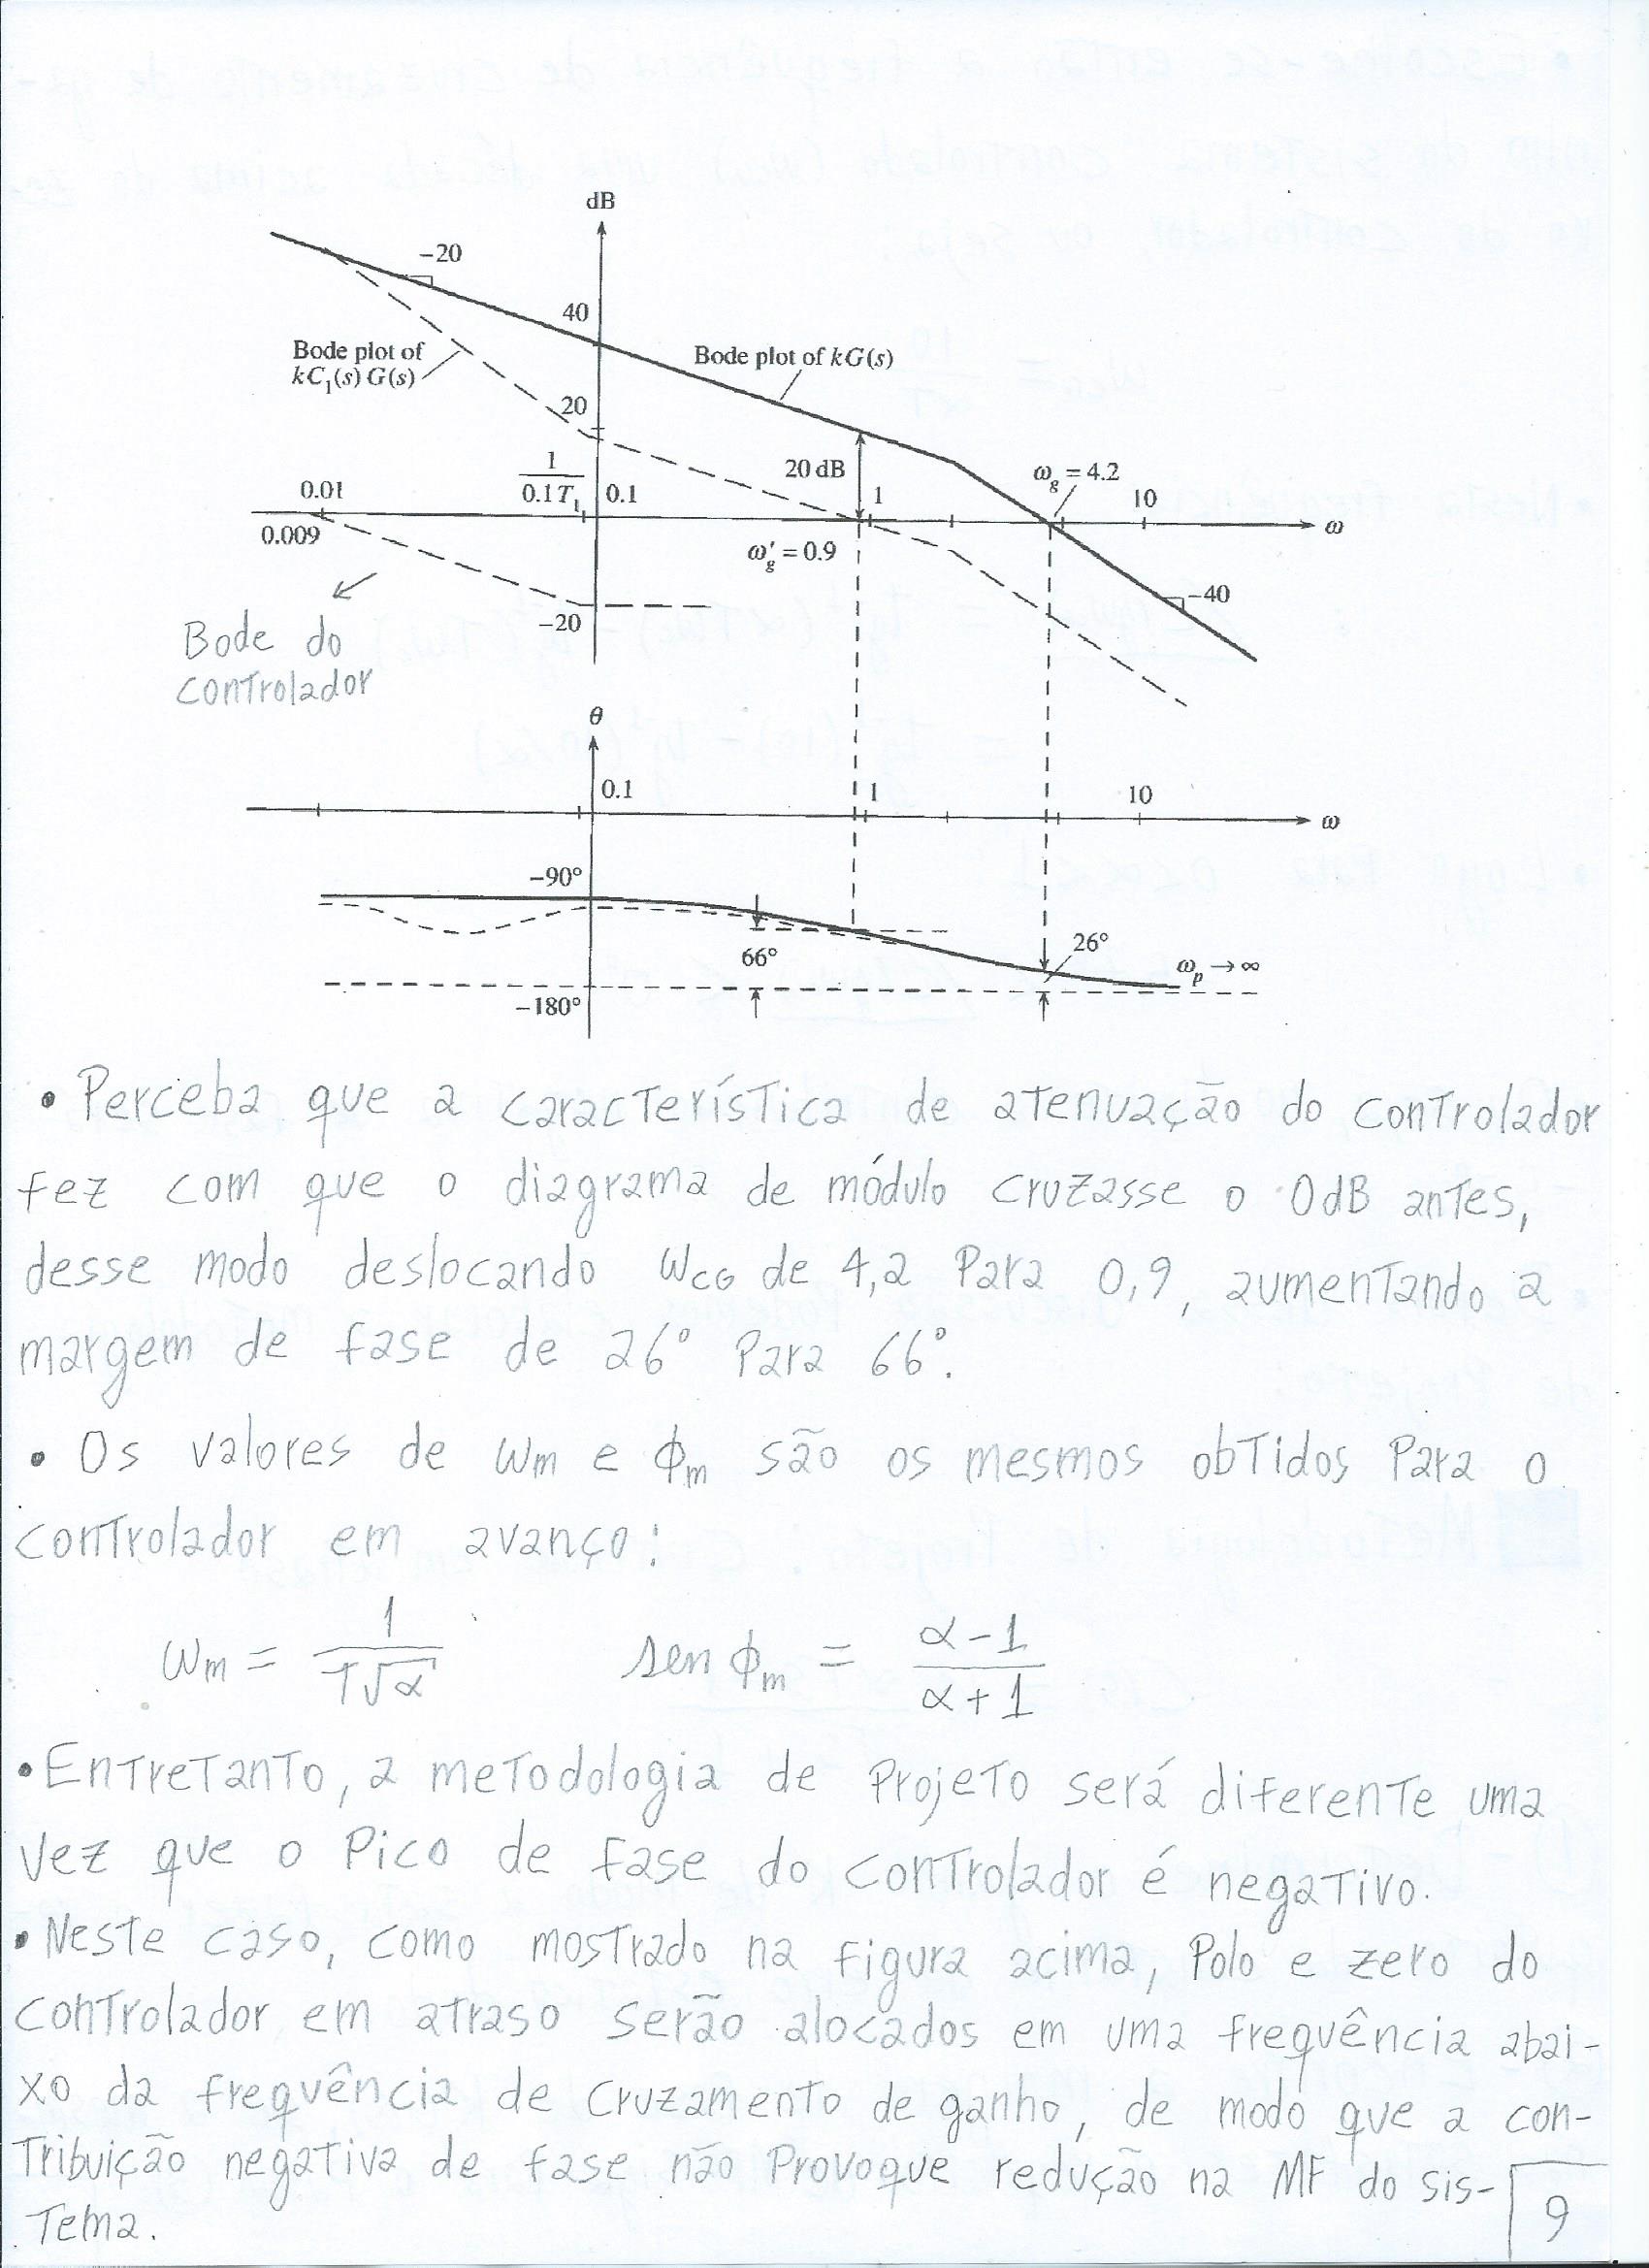 dB
-20
40
Bode plot of
kC₁(s) G(s)
Bode plot of kG(s)
20
20 dB
1
0.1T₁
0.01
0.1
1
ω_g = 4.2
10
ω
0.009
ω'_g = 0.9
-20
-40
Bode do
controlador
θ
0.1
1
10
ω
-90°
66°
26°
ω_p → ∞
-180°
• Perceba que a característica de atenuação do controlador
fez com que o diagrama de módulo cruzasse o 0dB antes,
desse modo deslocando ωCG de 4,2 para 0,9, aumentando a
margem de fase de 26° para 66°.
• Os valores de ωm e ϕm são os mesmos obtidos para o
controlador em avanço:
ωm = 1 / T√α     sen ϕm = α-1 / α+1
• Entretanto, a metodologia de projeto será diferente uma
vez que o pico de fase do controlador é negativo.
• Neste caso, como mostrado na figura acima, polo e zero do
controlador em atraso serão alocados em uma frequência abai-
xo da frequência de cruzamento de ganho, de modo que a con-
tribuição negativa de fase não provoque redução na MF do sis-
tema.
9